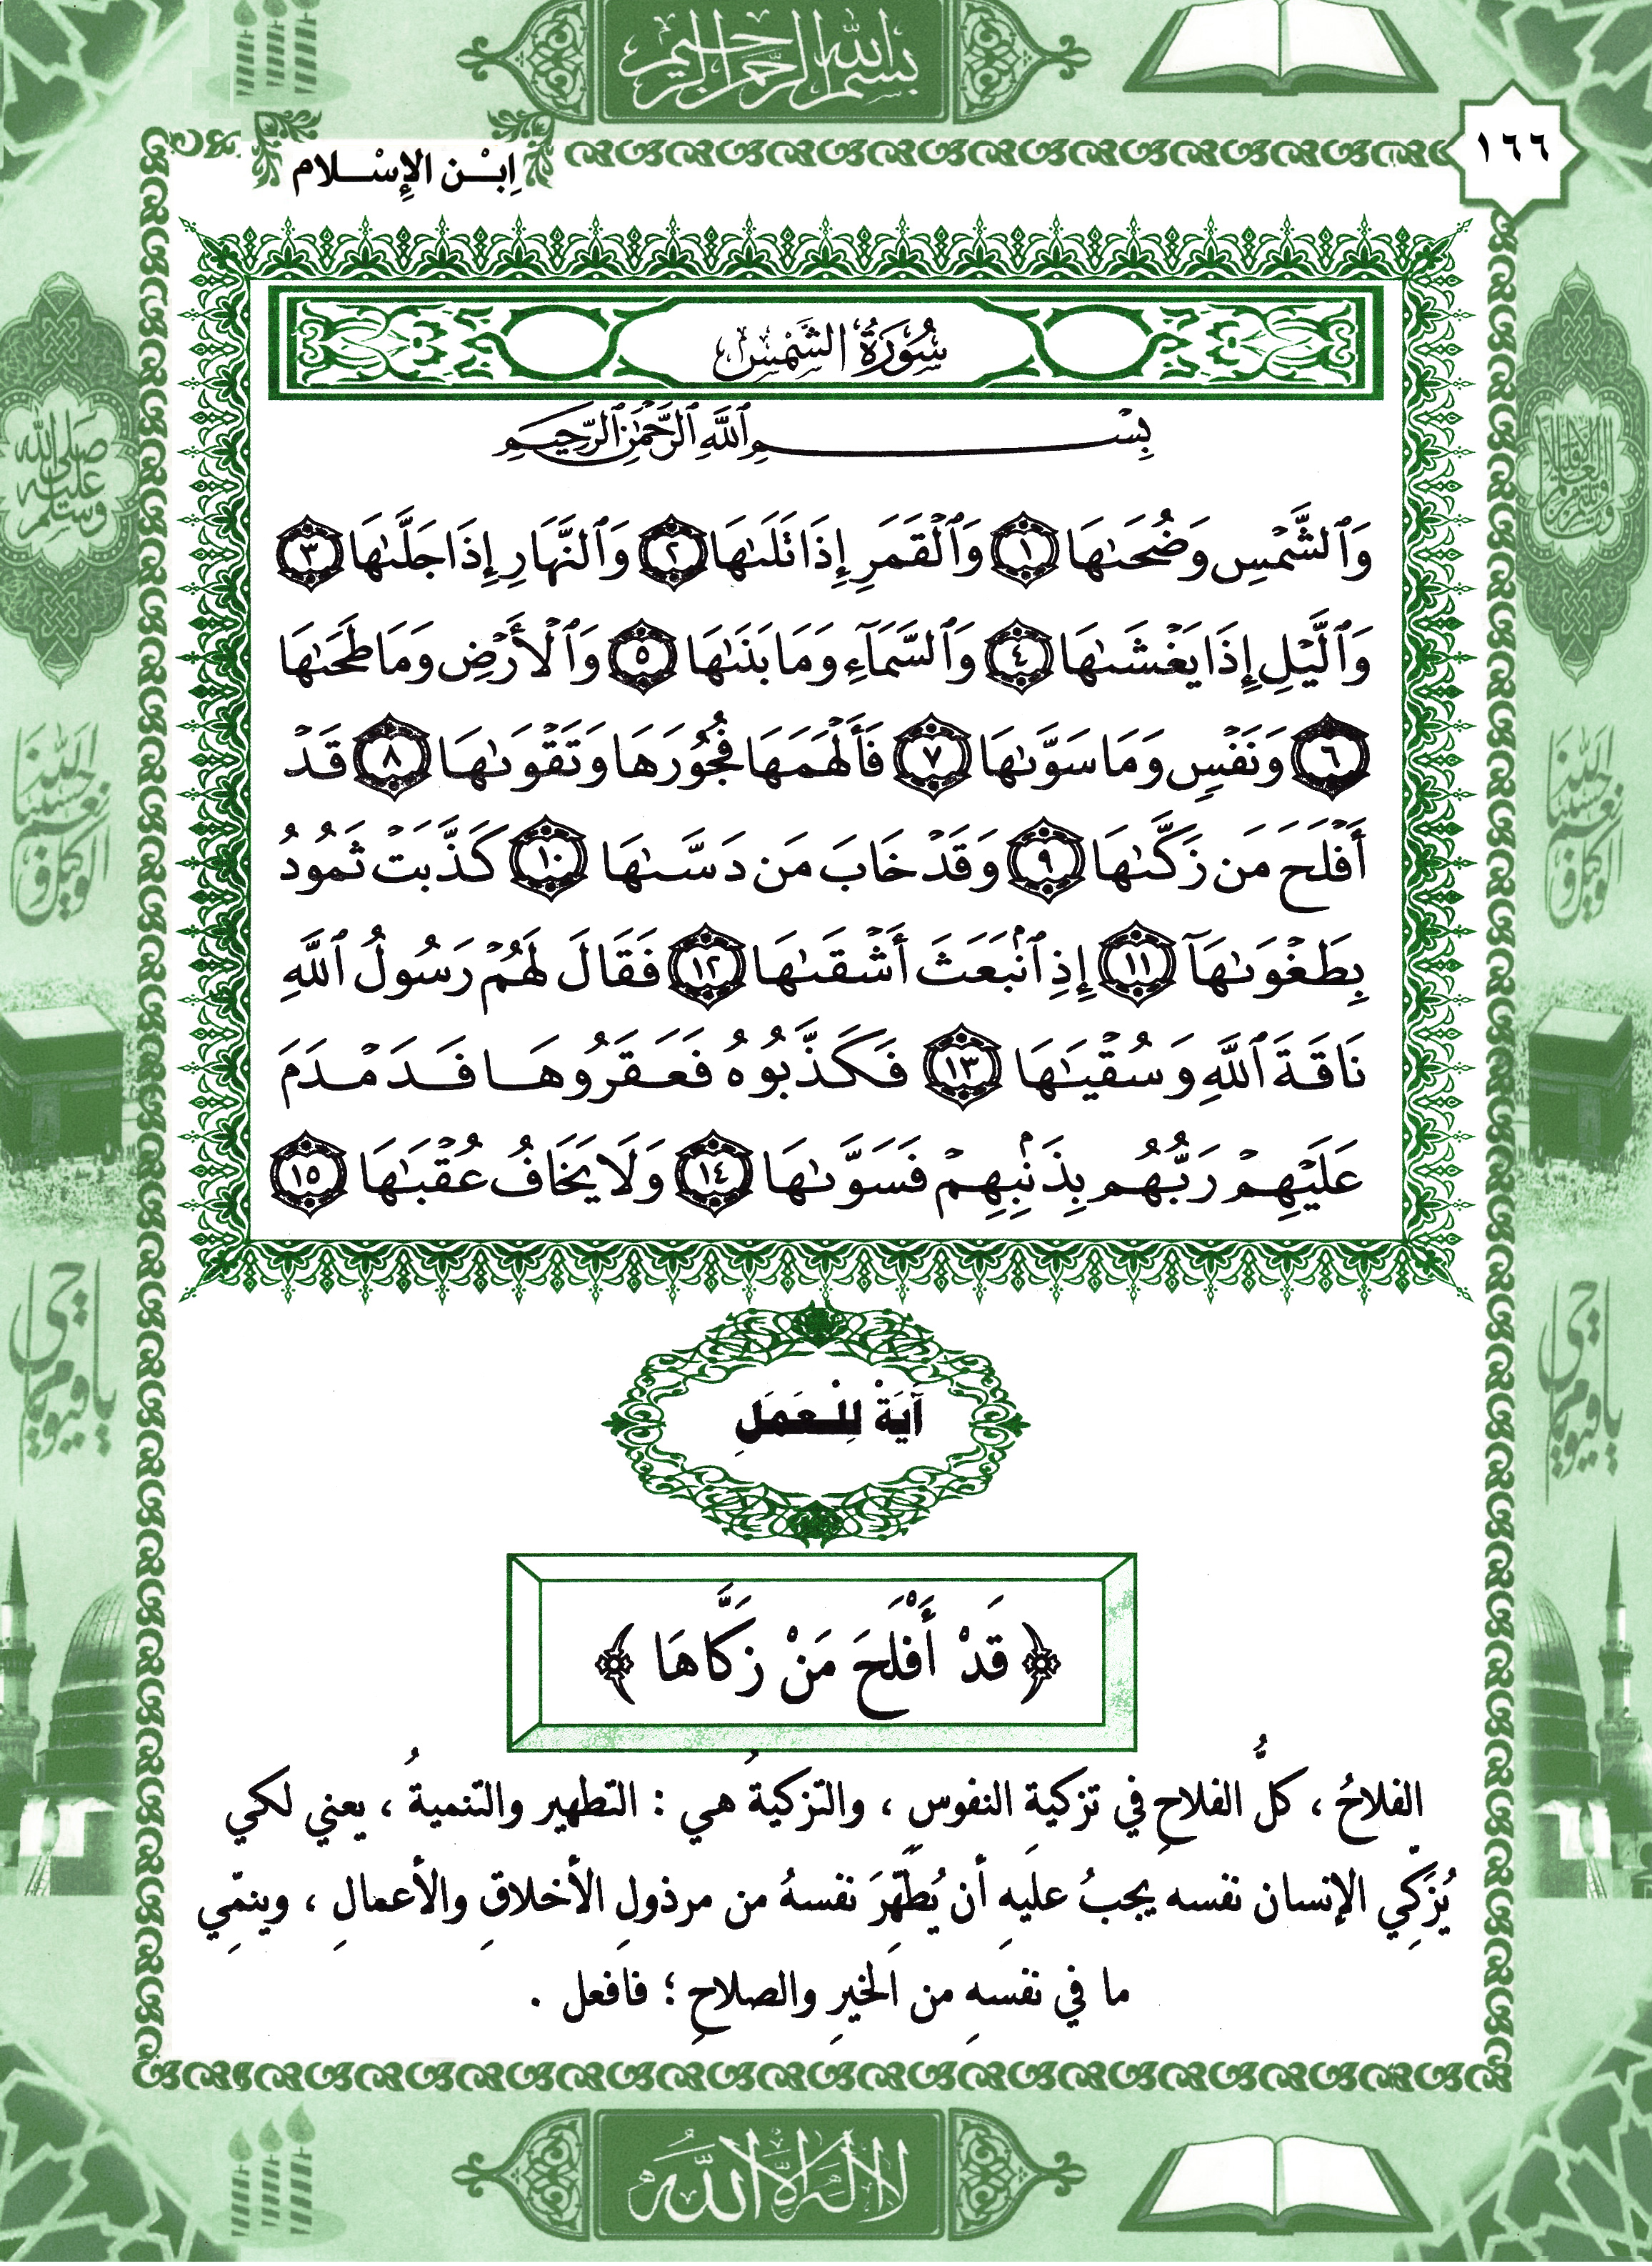 بسم الله الرحمن الرحيم
١٦٦
اِبْـن الإِسْـلام
سُورَةُ الشَّمْسِ
بِسْمِ ٱللَّهِ ٱلرَّحْمَٰنِ ٱلرَّحِيمِ
وَٱلشَّمْسِ وَضُحَىٰهَا ١ وَٱلْقَمَرِ إِذَا تَلَىٰهَا ٢ وَٱلنَّهَارِ إِذَا جَلَّىٰهَا ٣
وَٱلَّيْلِ إِذَا يَغْشَىٰهَا ٤ وَٱلسَّمَآءِ وَمَا بَنَىٰهَا ٥ وَٱلْأَرْضِ وَمَا طَحَىٰهَا
٦ وَنَفْسٍ وَمَا سَوَّىٰهَا ٧ فَأَلْهَمَهَا فُجُورَهَا وَتَقْوَىٰهَا ٨ قَدْ
أَفْلَحَ مَن زَكَّىٰهَا ٩ وَقَدْ خَابَ مَن دَسَّىٰهَا ١٠ كَذَّبَتْ ثَمُودُ
بِطَغْوَىٰهَآ ١١ إِذِ ٱنۢبَعَثَ أَشْقَىٰهَا ١٢ فَقَالَ لَهُمْ رَسُولُ ٱللَّهِ
نَاقَةَ ٱللَّهِ وَسُقْيَٰهَا ١٣ فَكَذَّبُوهُ فَعَقَرُوهَا فَدَمْدَمَ
عَلَيْهِمْ رَبُّهُم بِذَنۢبِهِمْ فَسَوَّىٰهَا ١٤ وَلَا يَخَافُ عُقْبَٰهَا ١٥
آيَةْ لِلْـعَمَلِ
﴿ قَدْ أَفْلَحَ مَنْ زَكَّاهَا ﴾
الفلاحُ ، كلُّ الفلاحِ في تزكيةِ النفوسِ ، والتزكيةُ هي : التطهير والتنميةُ ، يعني لكي
يُزَكِّي الإنسان نفسه يجبُ عليهِ أن يُطَهِّرَ نفسهُ من مرذولِ الأخلاقِ والأعمالِ ، وينمِّي
ما في نفسهِ من الخيرِ والصلاحِ ؛ فافعل .
لا إله إلا الله
صلى الله عليه وسلم
حسبنا الله ونعم الوكيل
يا حي يا قيوم